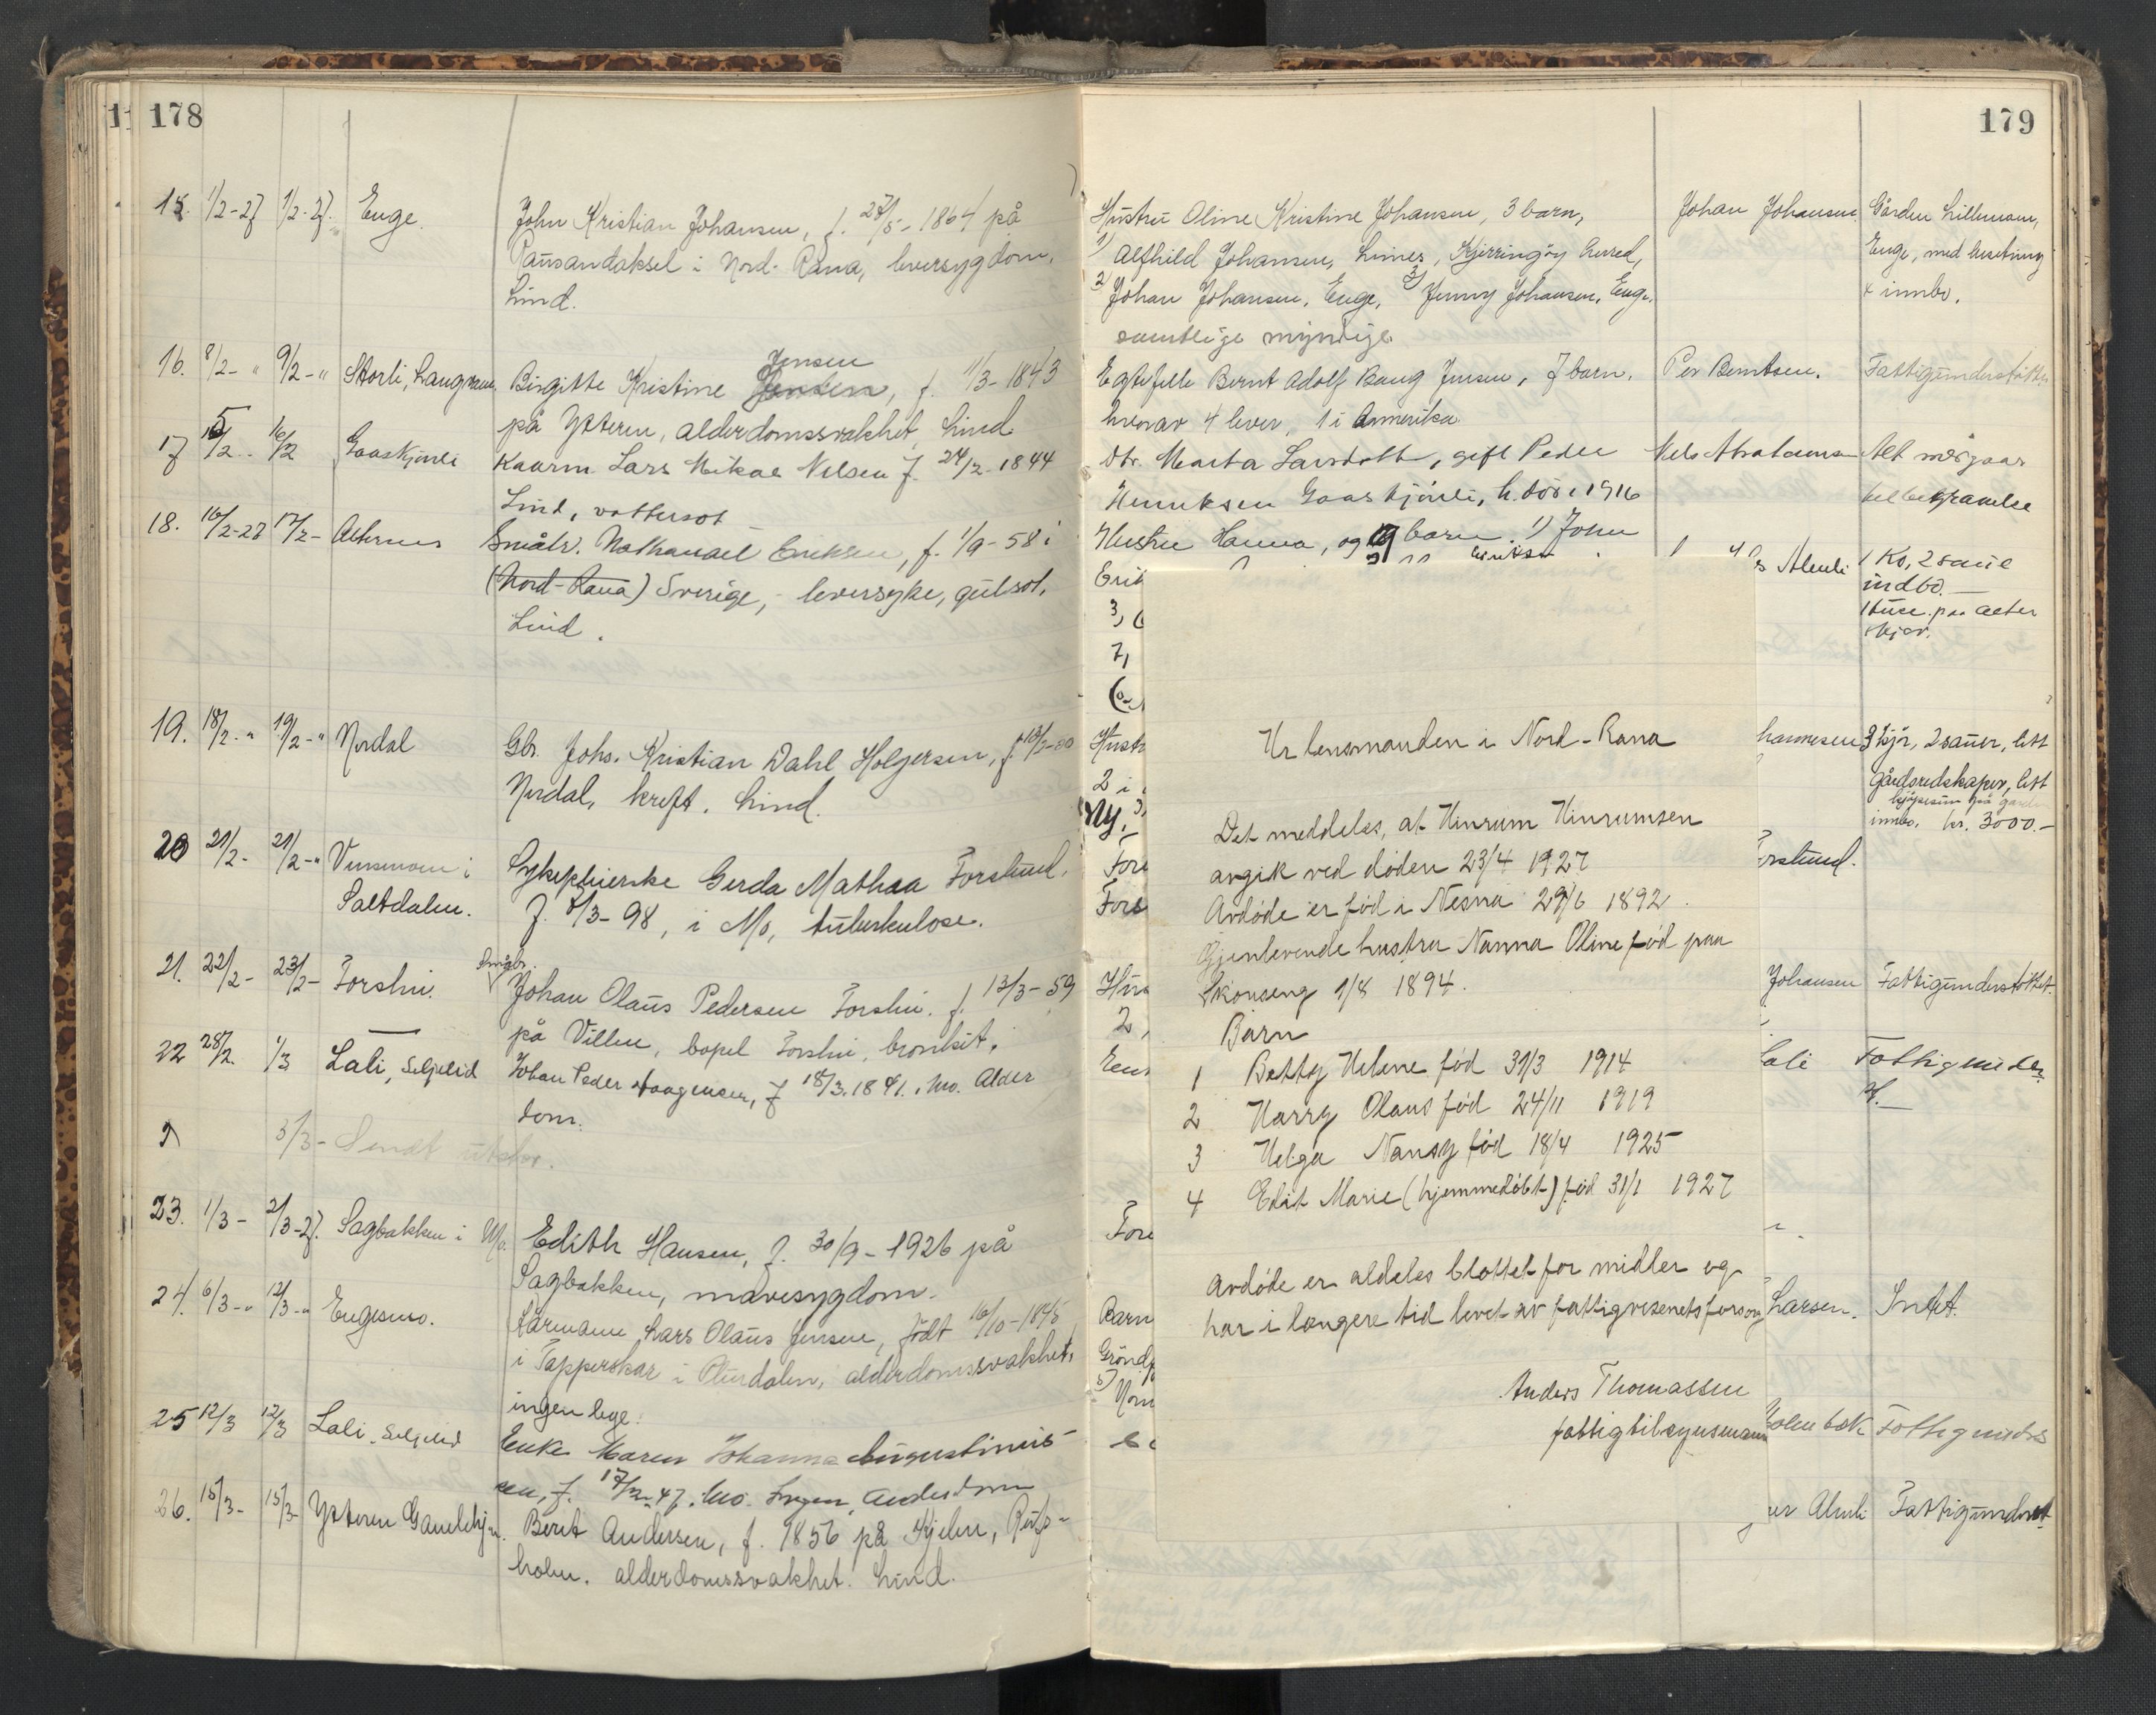 178
15. 1/2-27 1/2-27. Enge.
John Kristian Johansen, f. 1864 på
Rausandaksel i Nord-Rana, leversygdom.
Lind.
16. 8/2- " 9/2-" Storli, Langvann.
Jensen
Birgitte Kristine Jensen, f. 1/3-1843
på Ytteren, alderdomssvakhet, Lind.
17 15/2 - 16/2 Gaaskjønli
Kaarm Lars Mikal Nilsen f. 24/2-1844
Lind, vattersot
18. 16/2-27 17/2- Alternes
Småbr. Nathanael Eriksen, f. 1/9-58 i
(Nord-Rana) Sverige, - leversyke, gulsot.
Lind.
19. 18/2 - " 19/2-" Nordal
Gbr. Johs. Kristian Dahl Holgersen,
Nordal, kreft. Lind.
20 21/2- 21/2-"
Saltdalen.
Sykepleierske Gerda Mathea Forslund,
i Mo, tuberkulose.
21. 22/2- 23/2- Forslii.
Småbr.
Johan Olaus Pedersen Forslii. f. 13/3-59
på Villen, bopel Forslii, bronkit.
22 28/2. 1/3 Lali, Seljelid
Johan Peder Haagensen, f 18/3.1841. Mo. Alder
dom.
3/3- Sendt utskr.
23. 1/3- 2/3-27. Sagbakken i Mo.
Edith Hansen, f. 30/9-1926 på
Sagbakken, mavesygdom.
24. 6/3-" 12/3-" Engesmo.
Kårmann Lars Olaus Jensen, født 16/10-1845
i Tapperskar i Plurdalen, alderdomssvakhet,
ingen lege.
25 12/3 12/3 Lali, Seljelid
Enke Maren Johanna Augustinus-
sen, f. 17/2-47. Mo. Ingen, Alderdom
26. 15/3- 15/3- Ytteren Gamlehj.
Berit Andersen, f. 1856 på Kjelen, Røfs-
holm. alderdomssvakhet. Lind.
179
Hustru Oline Kristine Johansen, 3 barn,
1) Alfhild Johansen, Kjerringøy herred,
2) Johan Johansen, Enge, 3) Jenny Johansen, Enge.
samtlige myndige.
Johan Johansen.
Gården Lillemoen,
Enge, med besetning
& innbo.
Egtefelle Bernt Adolf Baug Jensen, 7 barn.
hvorav 4 lever, 1 i Amerika
Per Berntsen.
Fattigunderstøttet
Dtr. Marta Larsdatter, gift Peder
Henriksen Gaaskjønli, h. død i 1916
Nels Abrahamsen
Alt medgaar
til begravelse
Hustru Hanna, og 9 barn. 1) John
Alenli
1 Ko, 2 sauer
indbo. -
Erik
3,
7,
Hustr
2 i
Ny.
hannesen
3 kjør, 2 sauer, litt
gårdsredskaper, litt
innbo. kr. 3000.-
Fore
Fore
orslund.
Hus
2,
Johansen
Fattigunderstøttet.
Lali
Fattigunder
st.
Fore
Barn
Larsen.
Intet.
Holmbak
Fattigunders
er Alenli
Fattigunderst
Hr lensmanden i Nord-Rana
Det meddeles, at Hinrum Hinrumsen
avgik ved døden 23/4 1927
Avdøde er fød i Nesna 29/6 1892.
Gjenlevende hustru Nanna Oline fød paa
Skonseng 1/8 1894.
Barn
1 Betty Helene fød 31/3 1914
2 Harry Olaus fød 24/11 1919
3 Helga Nansy fød 18/4 1925
4 Edit Marie (hjemmedøbt) fød 31/1 1927
Avdøde er aldeles blottet for midler og
har i længere tid levet av fattigvesenets forsorg
Anders Thomassen
fattigtilsynsmann